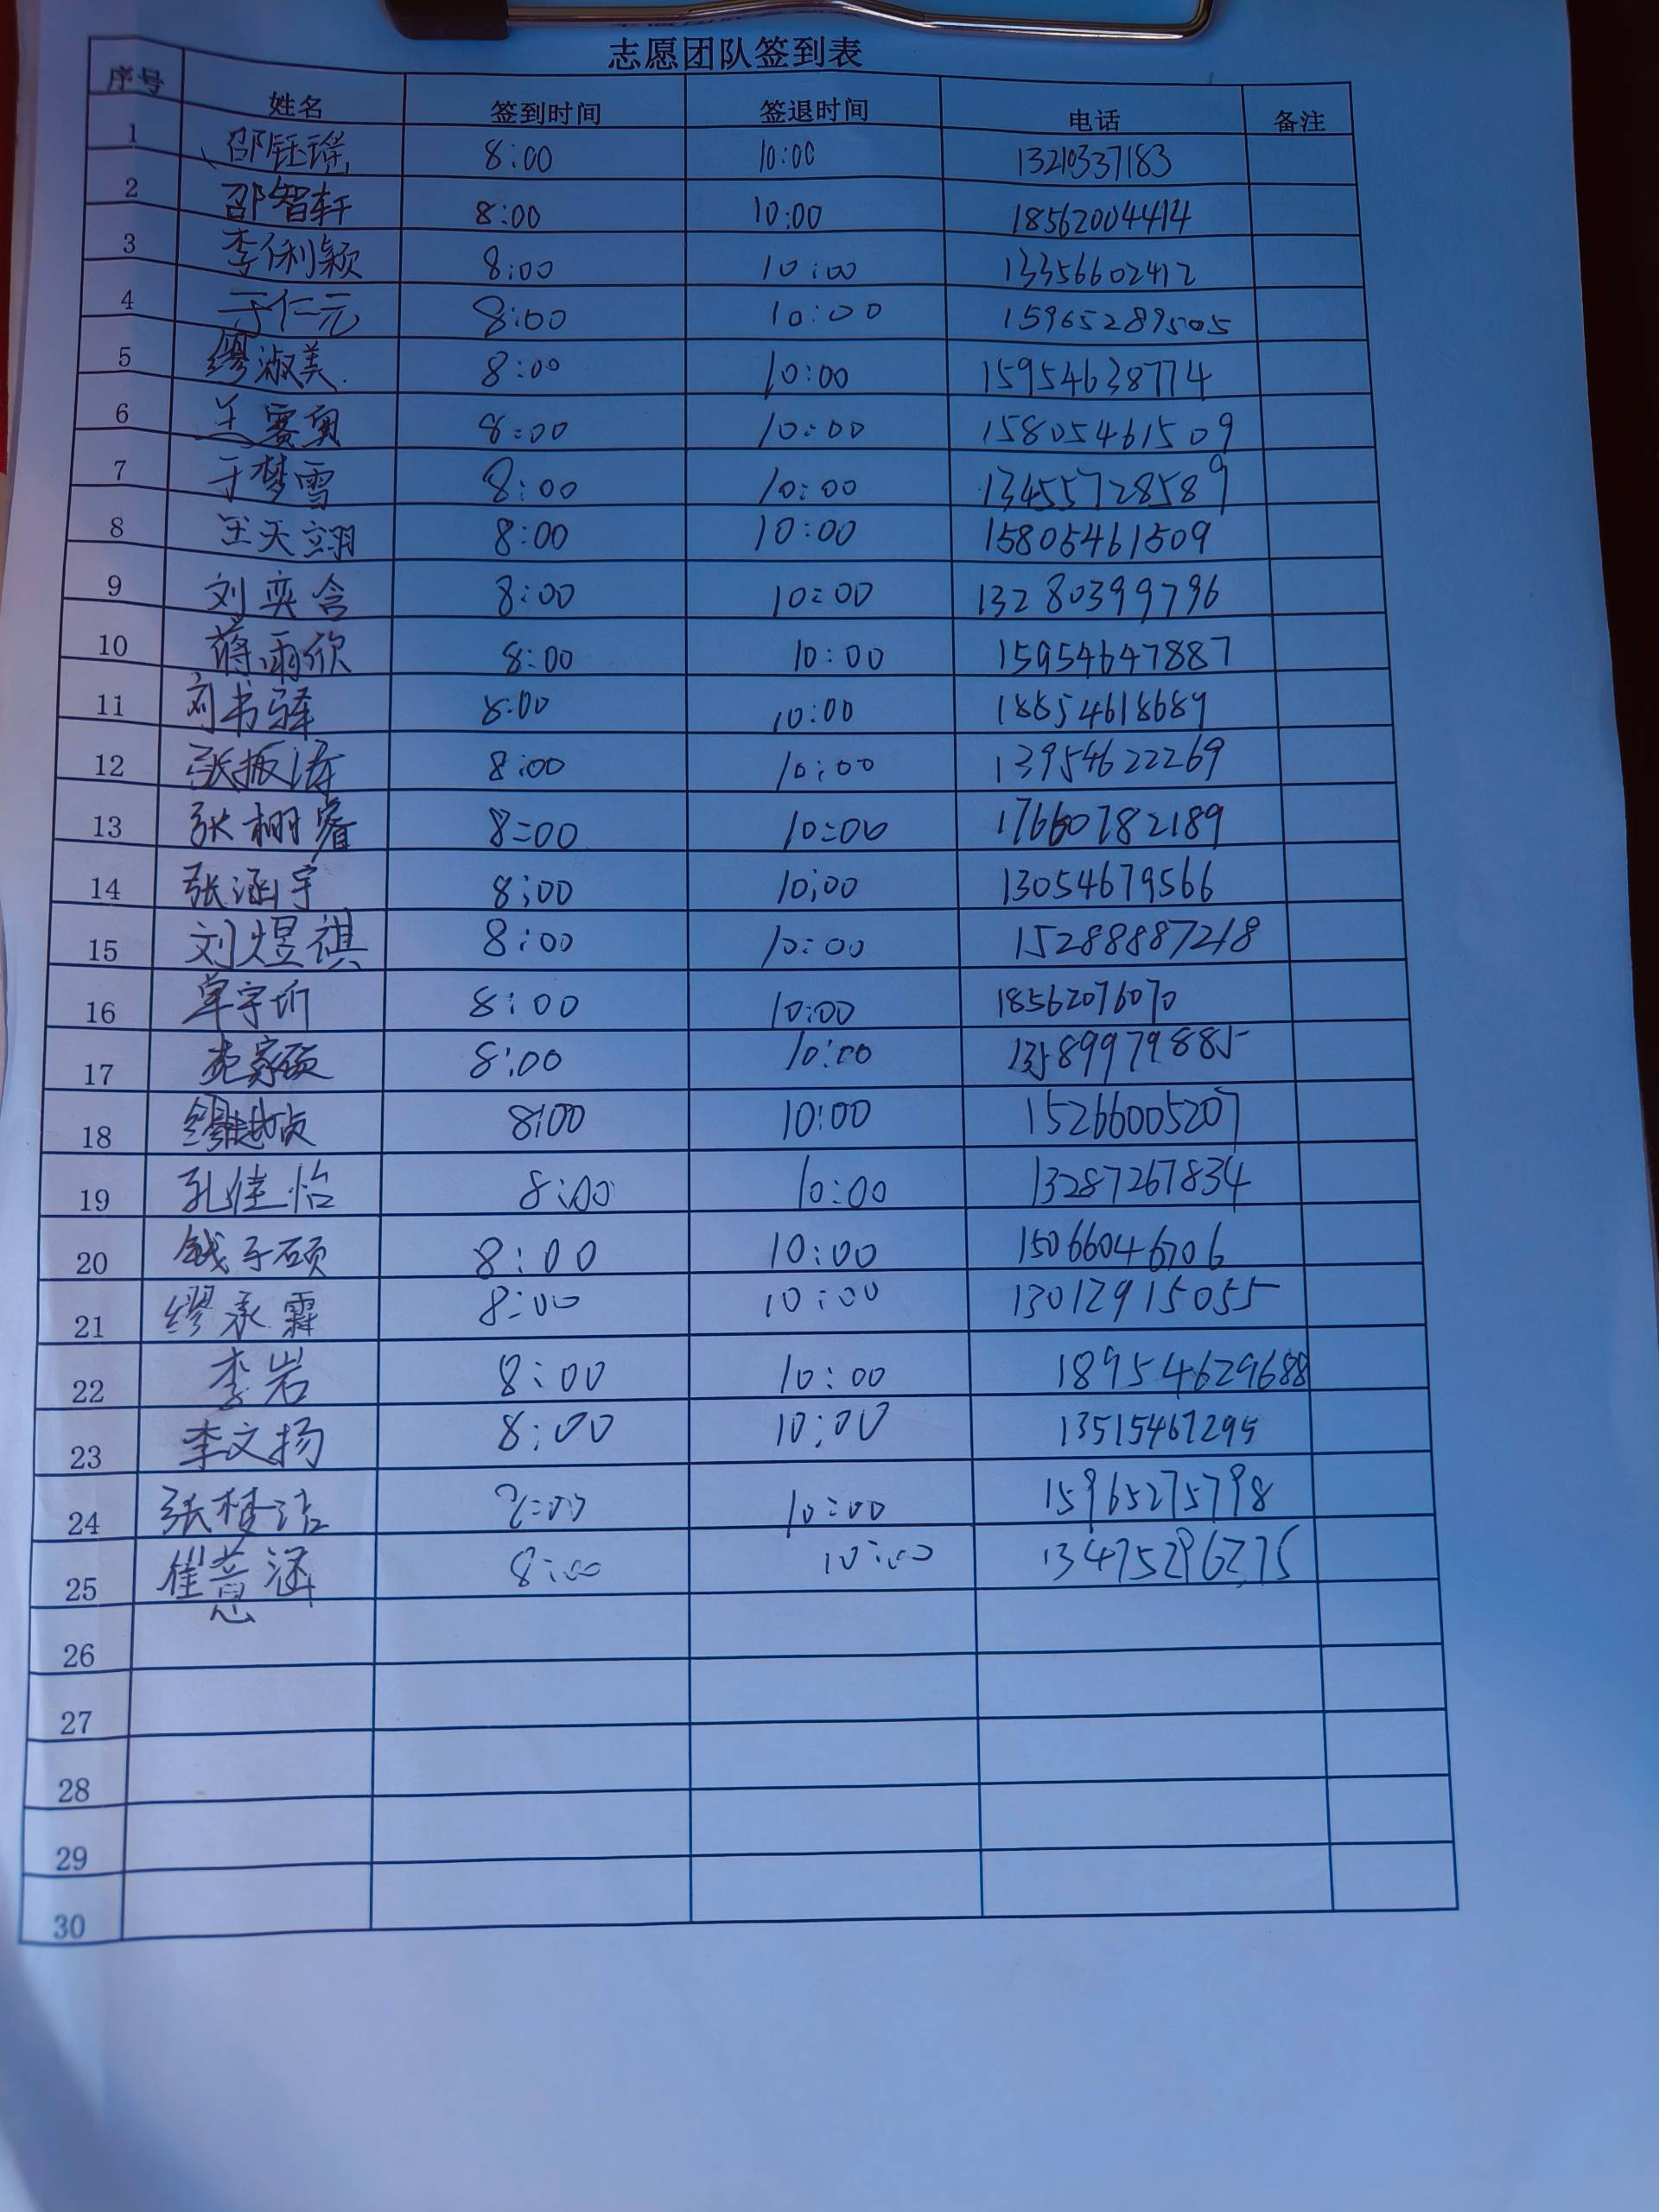 志愿团队签到表
序号 姓名 签到时间 签退时间 电话 备注
1 邵钰 8:00 10:00 13210337183
2 邵智轩 8:00 10:00 18562004414
3 李俐颖 8:00 10:00 13356602412
4 于仁元 8:00 10:00 15965289505
5 缪淑美 8:00 10:00 15954638774
6 王赛奥 8:00 10:00 15805461509
7 于梦雪 8:00 10:00 13455728589
8 王天翊 8:00 10:00 15805461509
9 刘奕含 8:00 10:00 13280399796
10 蒋雨欣 8:00 10:00 15954647887
11 刘书驿 8:00 10:00 18854618689
12 张振涛 8:00 10:00 13954622269
13 张栩睿 8:00 10:00 17660782189
14 张涵宇 8:00 10:00 13054679566
15 刘煜祺 8:00 10:00 15288887218
16 单宇圻 8:00 10:00 18562076070
17 家硕 8:00 10:00 13589979885
18 缪 8:00 10:00 15266005207
19 孔佳怡 8:00 10:00 13287267834
20 钱子硕 8:00 10:00 15066046706
21 缪承霖 8:00 10:00 13012915055
22 李岩 8:00 10:00 18954629688
23 李文扬 8:00 10:00 13515467295
24 张梦洁 8:00 10:00 15965275798
25 崔意涵 8:00 10:00 13475296275
26
27
28
29
30